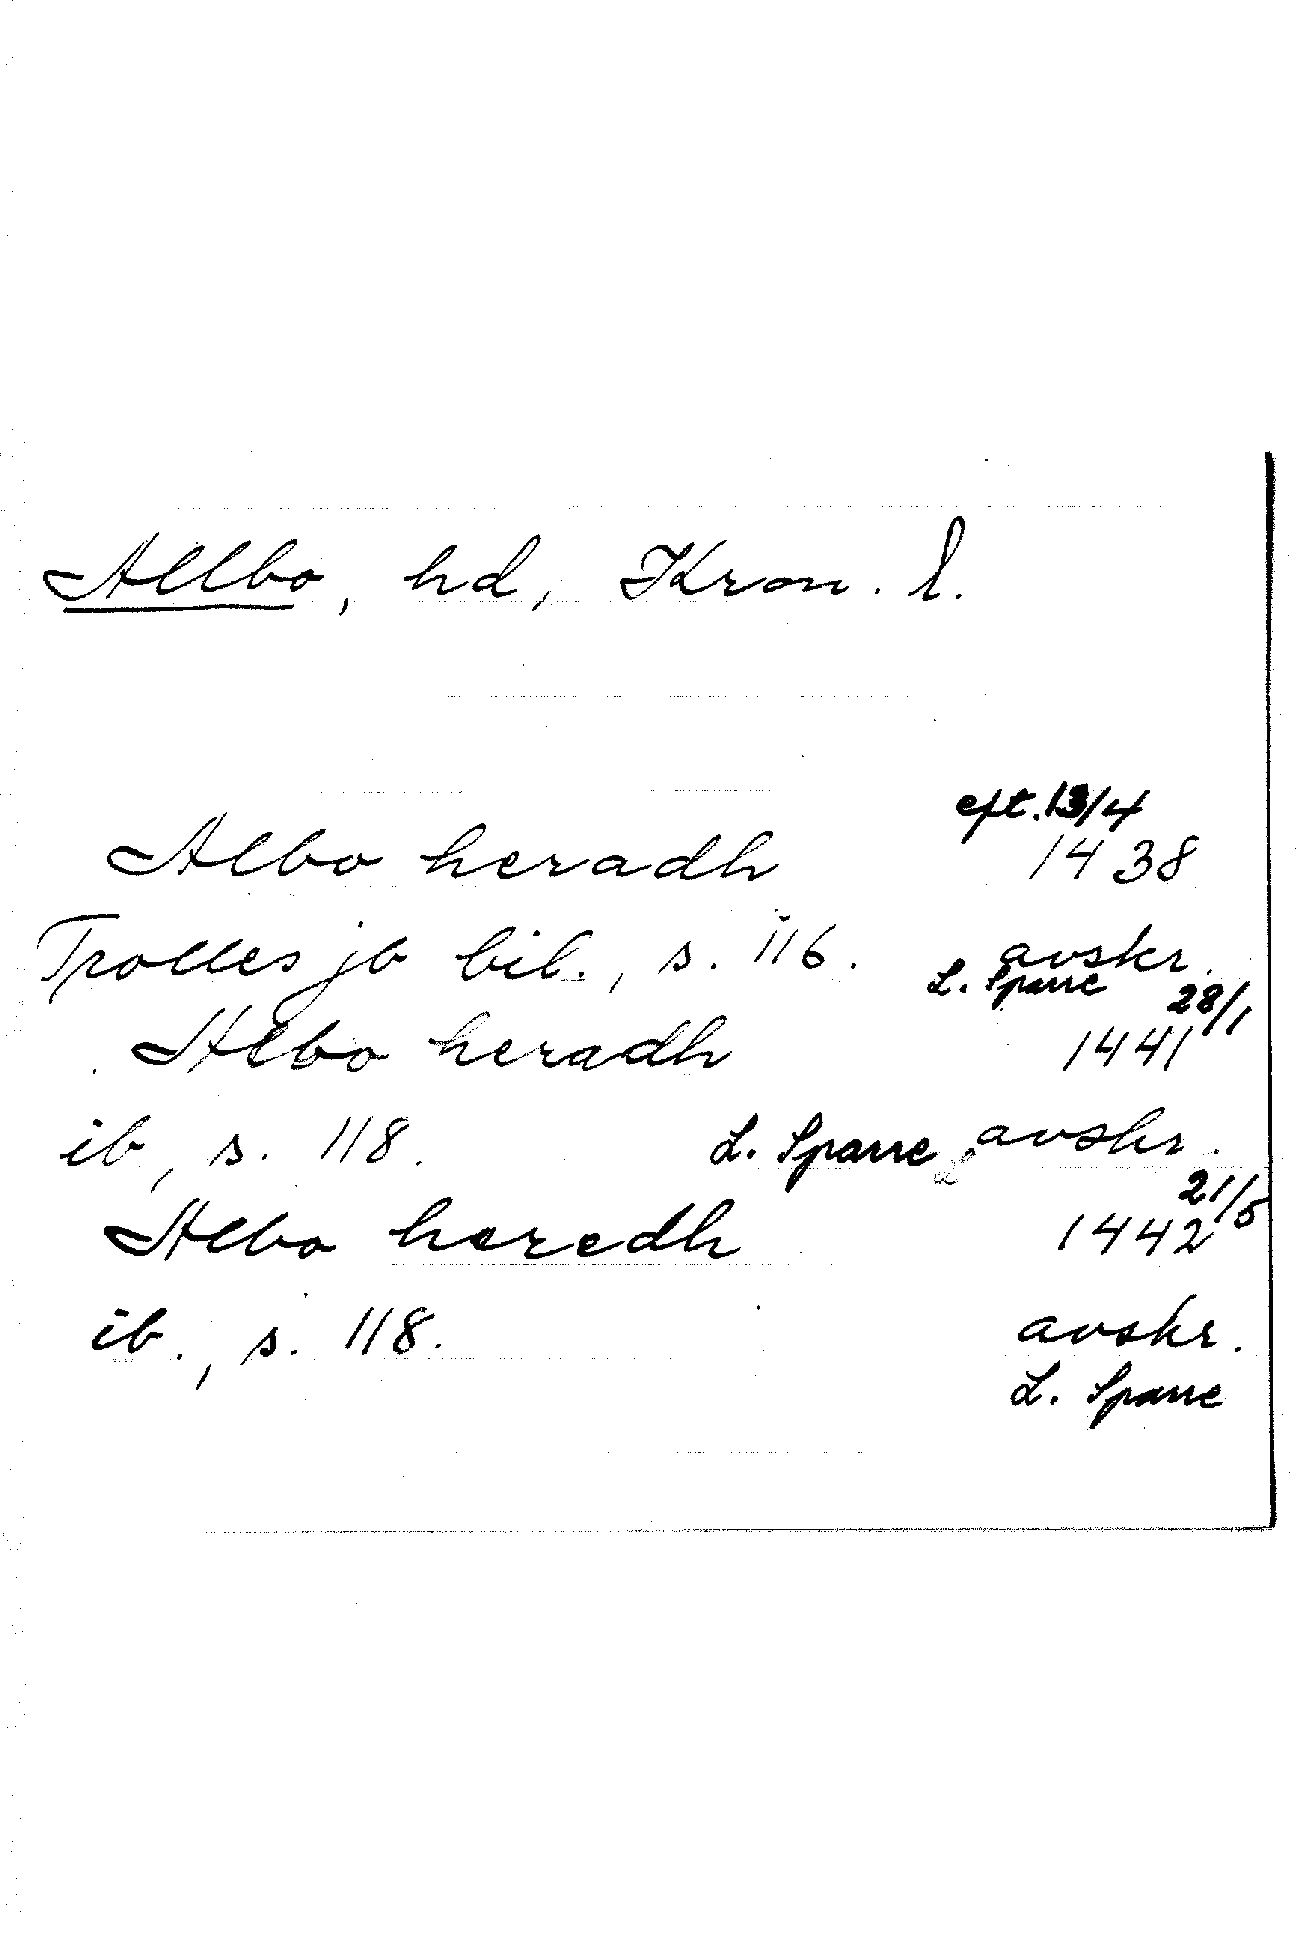 Allbo, hd, Kron. l.
eft. 13/4
Albo heradh 1438
Trolles jb bil., s. 116. avskr.
L. Sparre 28/1
Albo heradh 1441
ib, s. 118. L. Sparre avskr.
21/5
Albo heredh 1442
ib., s. 118. avskr.
L. Sparre